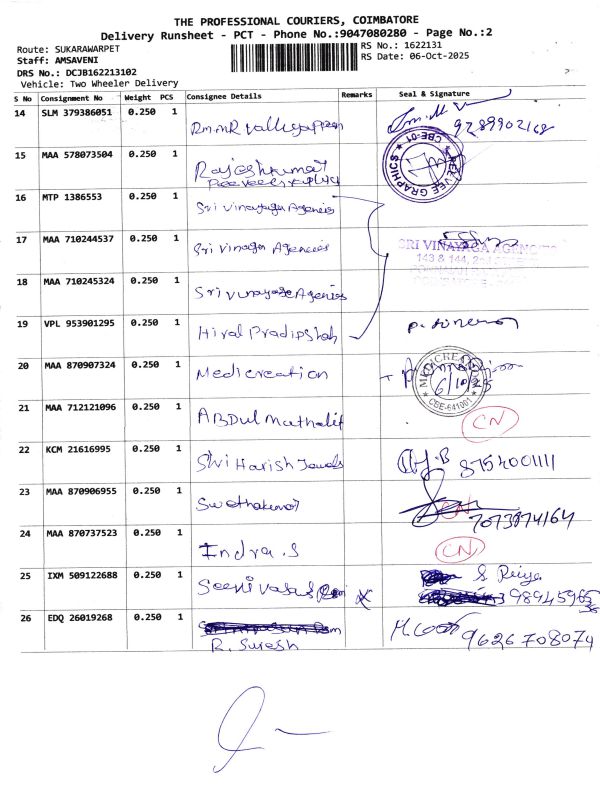 THE PROFESSIONAL COURIERS, COIMBATORE
Delivery Runsheet - PCT - Phone No.:9047080280 - Page No.:2
Route: SUKARAWARPET
RS No.: 1622131
Staff: AMSAVENI
RS Date: 06-Oct-2025
DRS No.: DCJB162213102
Vehicle: Two Wheeler Delivery
S No Consignment No Weight PCS Consignee Details Remarks Seal & Signature
14 SLM 379386051 0.250 1
9289902168
15 MAA 578073504 0.250 1 Rajeshkumar
GRAPHICS CBE-01
16 MTP 1386553 0.250 1 Sri Vinayaga Agencies
17 MAA 710244537 0.250 1 Sri Vinaga Agencies
SRI VINAYAGA AGENCIES
143 & 144,
18 MAA 710245324 0.250 1 Sri Vinayaga Agencies
19 VPL 953901295 0.250 1 Hiral Pradipshah
20 MAA 870907324 0.250 1 Medicreation
MEDICREATION
6/10/25
CBE-641001
21 MAA 712121096 0.250 1 ABDul Muthalif CN
22 KCM 21616995 0.250 1 Shri Harish Jewels 8754001111
23 MAA 870906955 0.250 1 Swethakumar CN
7073974164
24 MAA 870737523 0.250 1 Indra.S CN
25 IXM 509122688 0.250 1 Seenivasan S. Priya
26 EDQ 26019268 0.250 1 9626708074
R. Suresh